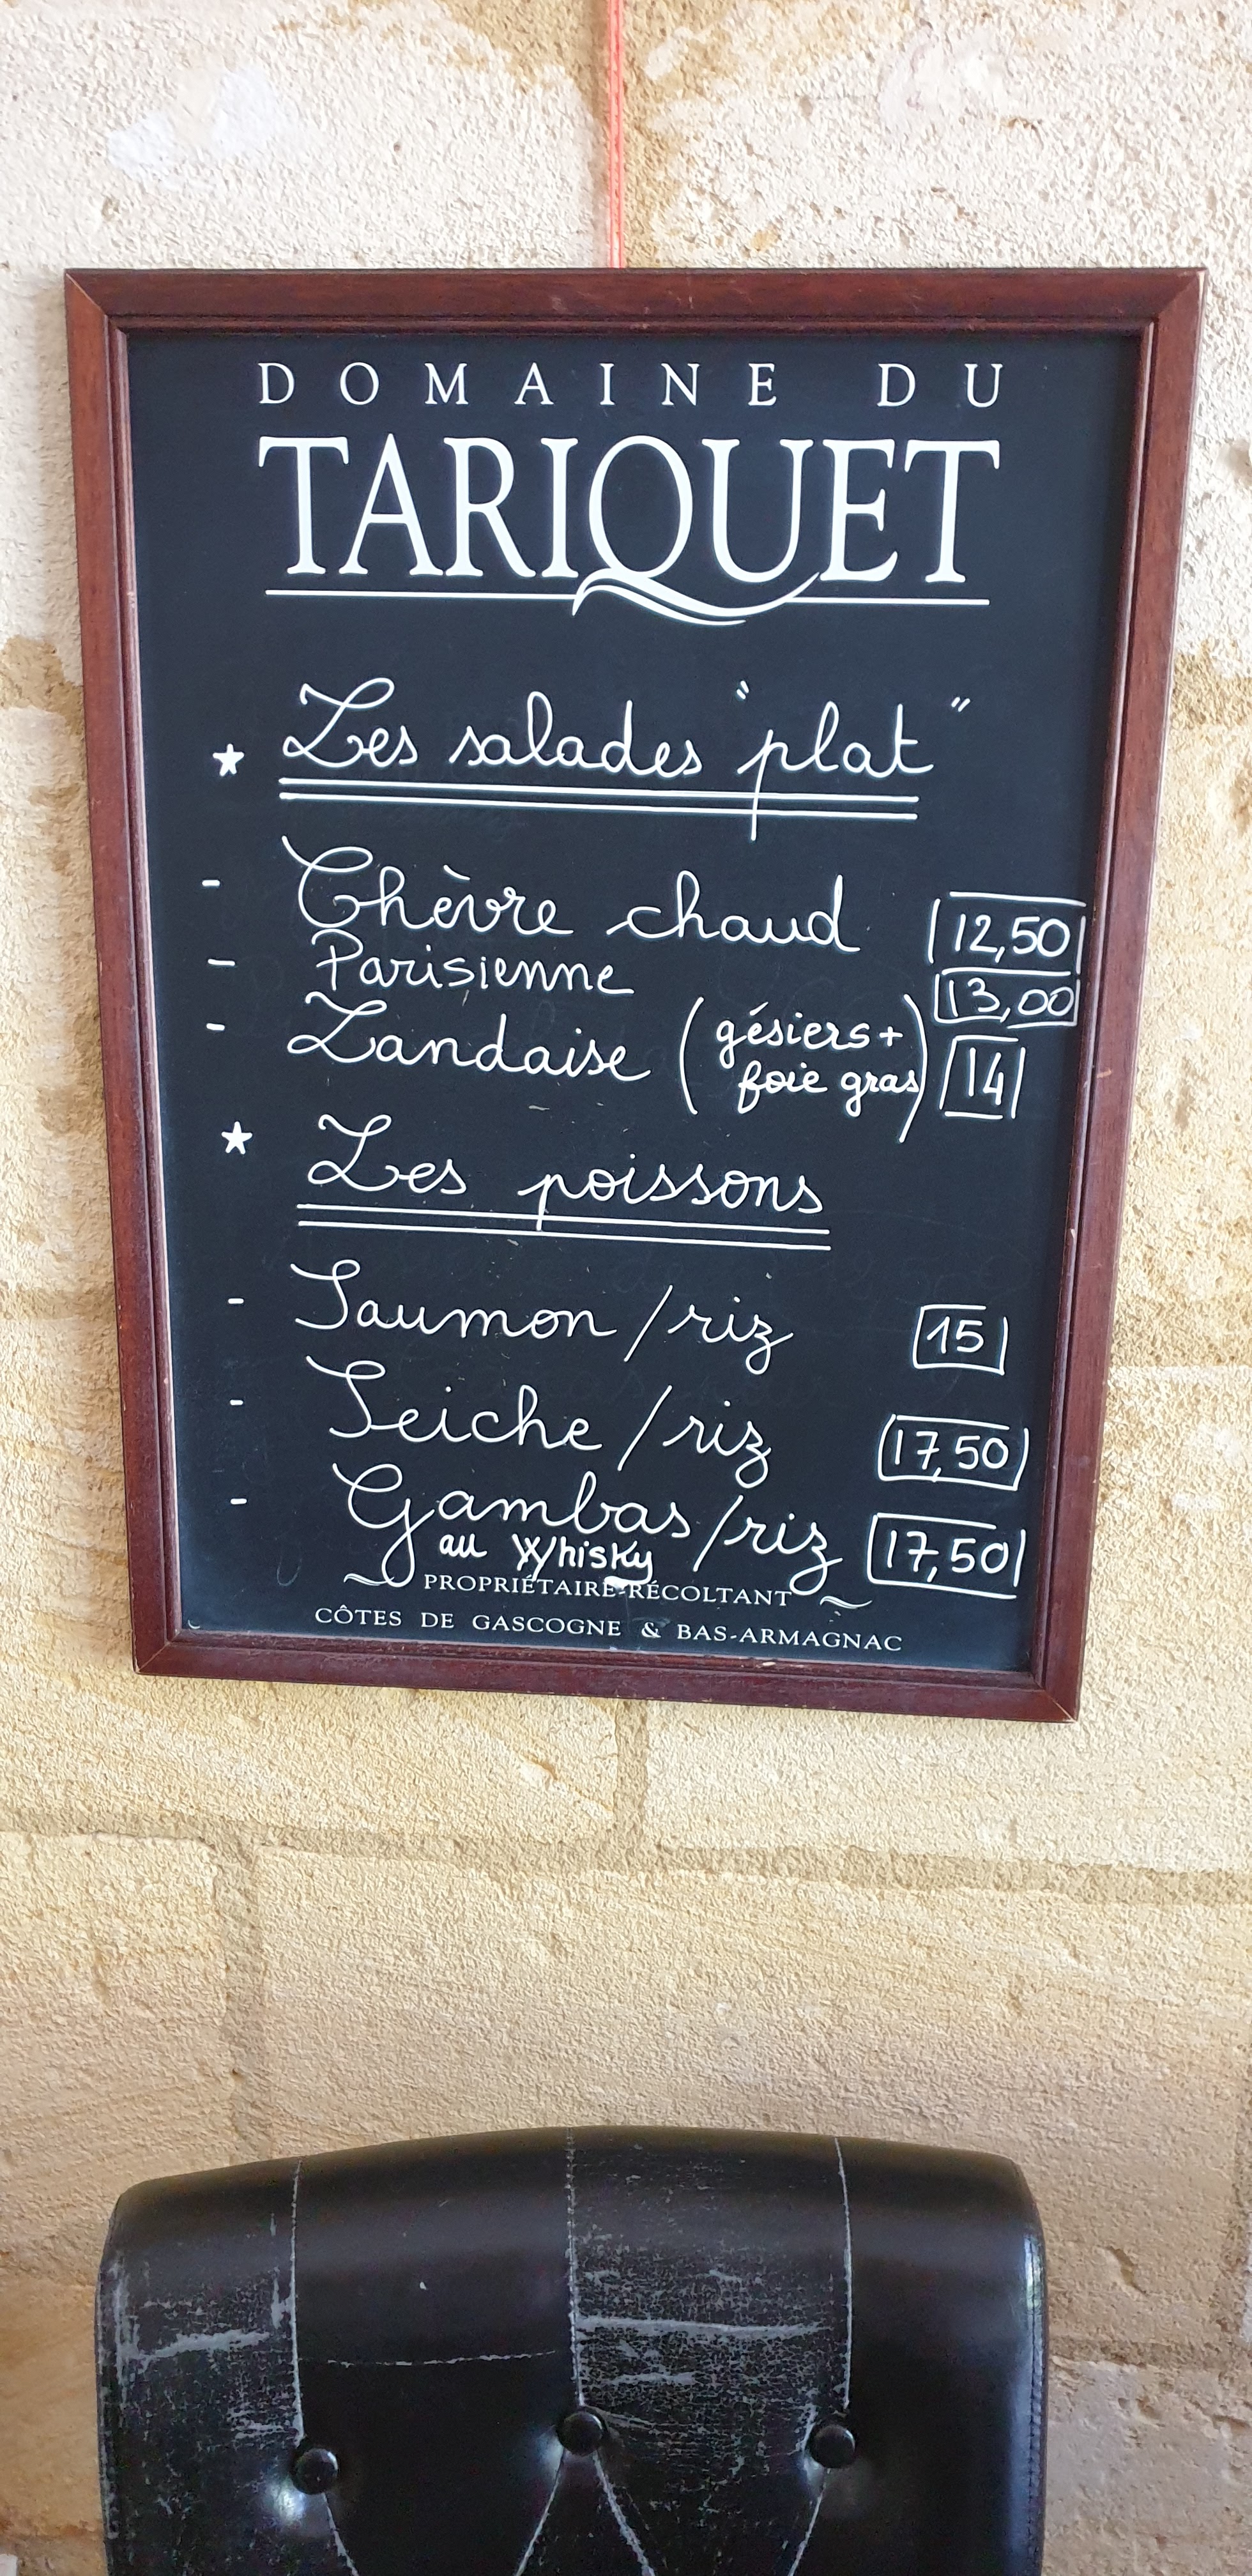 DOMAINE DU
TARIQUET
★ Les salades "plat"
- Chèvre chaud 12,50
- Parisienne 13,00
- Landaise (gésiers + foie gras) 14
★ Les poissons
- Saumon / riz 15
- Seiche / riz 17,50
- Gambas / riz 17,50
au Whisky
PROPRIÉTAIRE-RÉCOLTANT
CÔTES DE GASCOGNE & BAS-ARMAGNAC